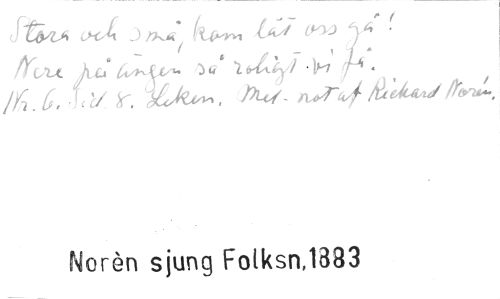 Stora och små, kom låt oss gå!
Nere på ängen så roligt vi få.
Nr. 6. Sid 8. Leken. Mel. not af Rickard Norén.
Norèn sjung Folksn,1883